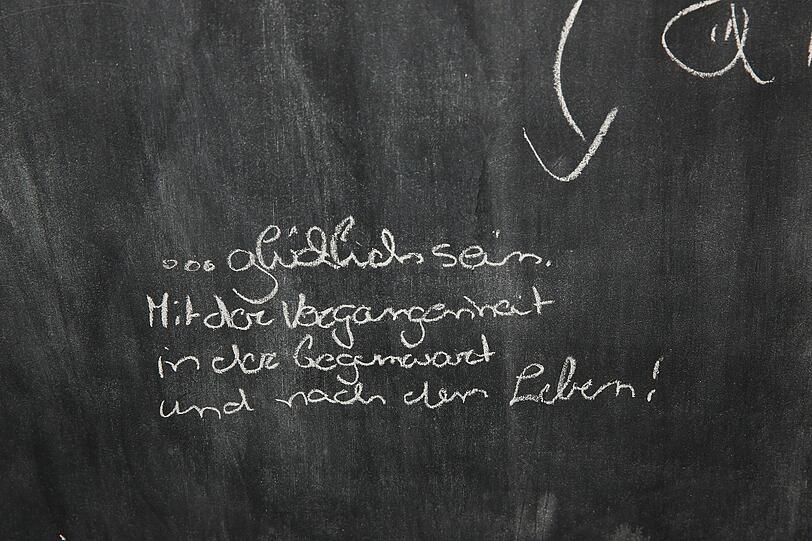 ...glücklich sein.
Mit der Vergangenheit
in der Gegenwart
und nach dem Leben!